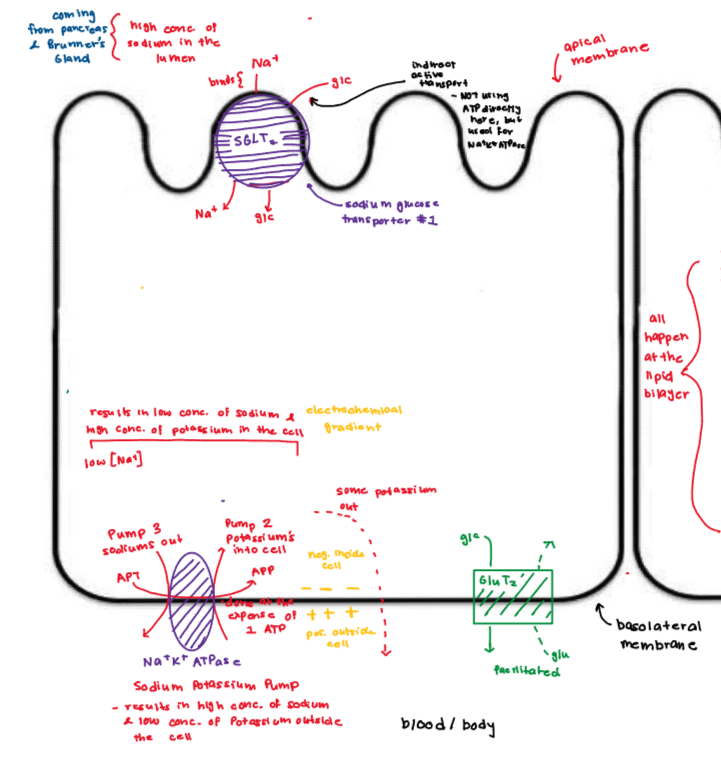 coming
from pancreas
& Brunner's
Gland
high conc. of
sodium in the
lumen
Na+
binds
glc
indirect
active
transport
- NOT using
ATP directly
here, but
used for
Na+K+ ATPase
apical
membrane
SGLT
Na+
glc
sodium glucose
transporter #1
all
happen
at the
lipid
bilayer
results in low conc. of sodium &
high conc. of potassium in the cell
electrochemical
gradient
low [Na+]
some potassium
out
Pump 3
sodiums out
Pump 2
potassium's
into cell
APT
APP
neg. inside
cell
- - -
+ + +
pos. outside
cell
done at the
expense of
1 ATP
Na+K+ ATPase
Sodium Potassium Pump
- results in high conc. of sodium
& low conc. of Potassium outside
the cell
glc
GluT2
glu
facilitated
basolateral
membrane
blood / body